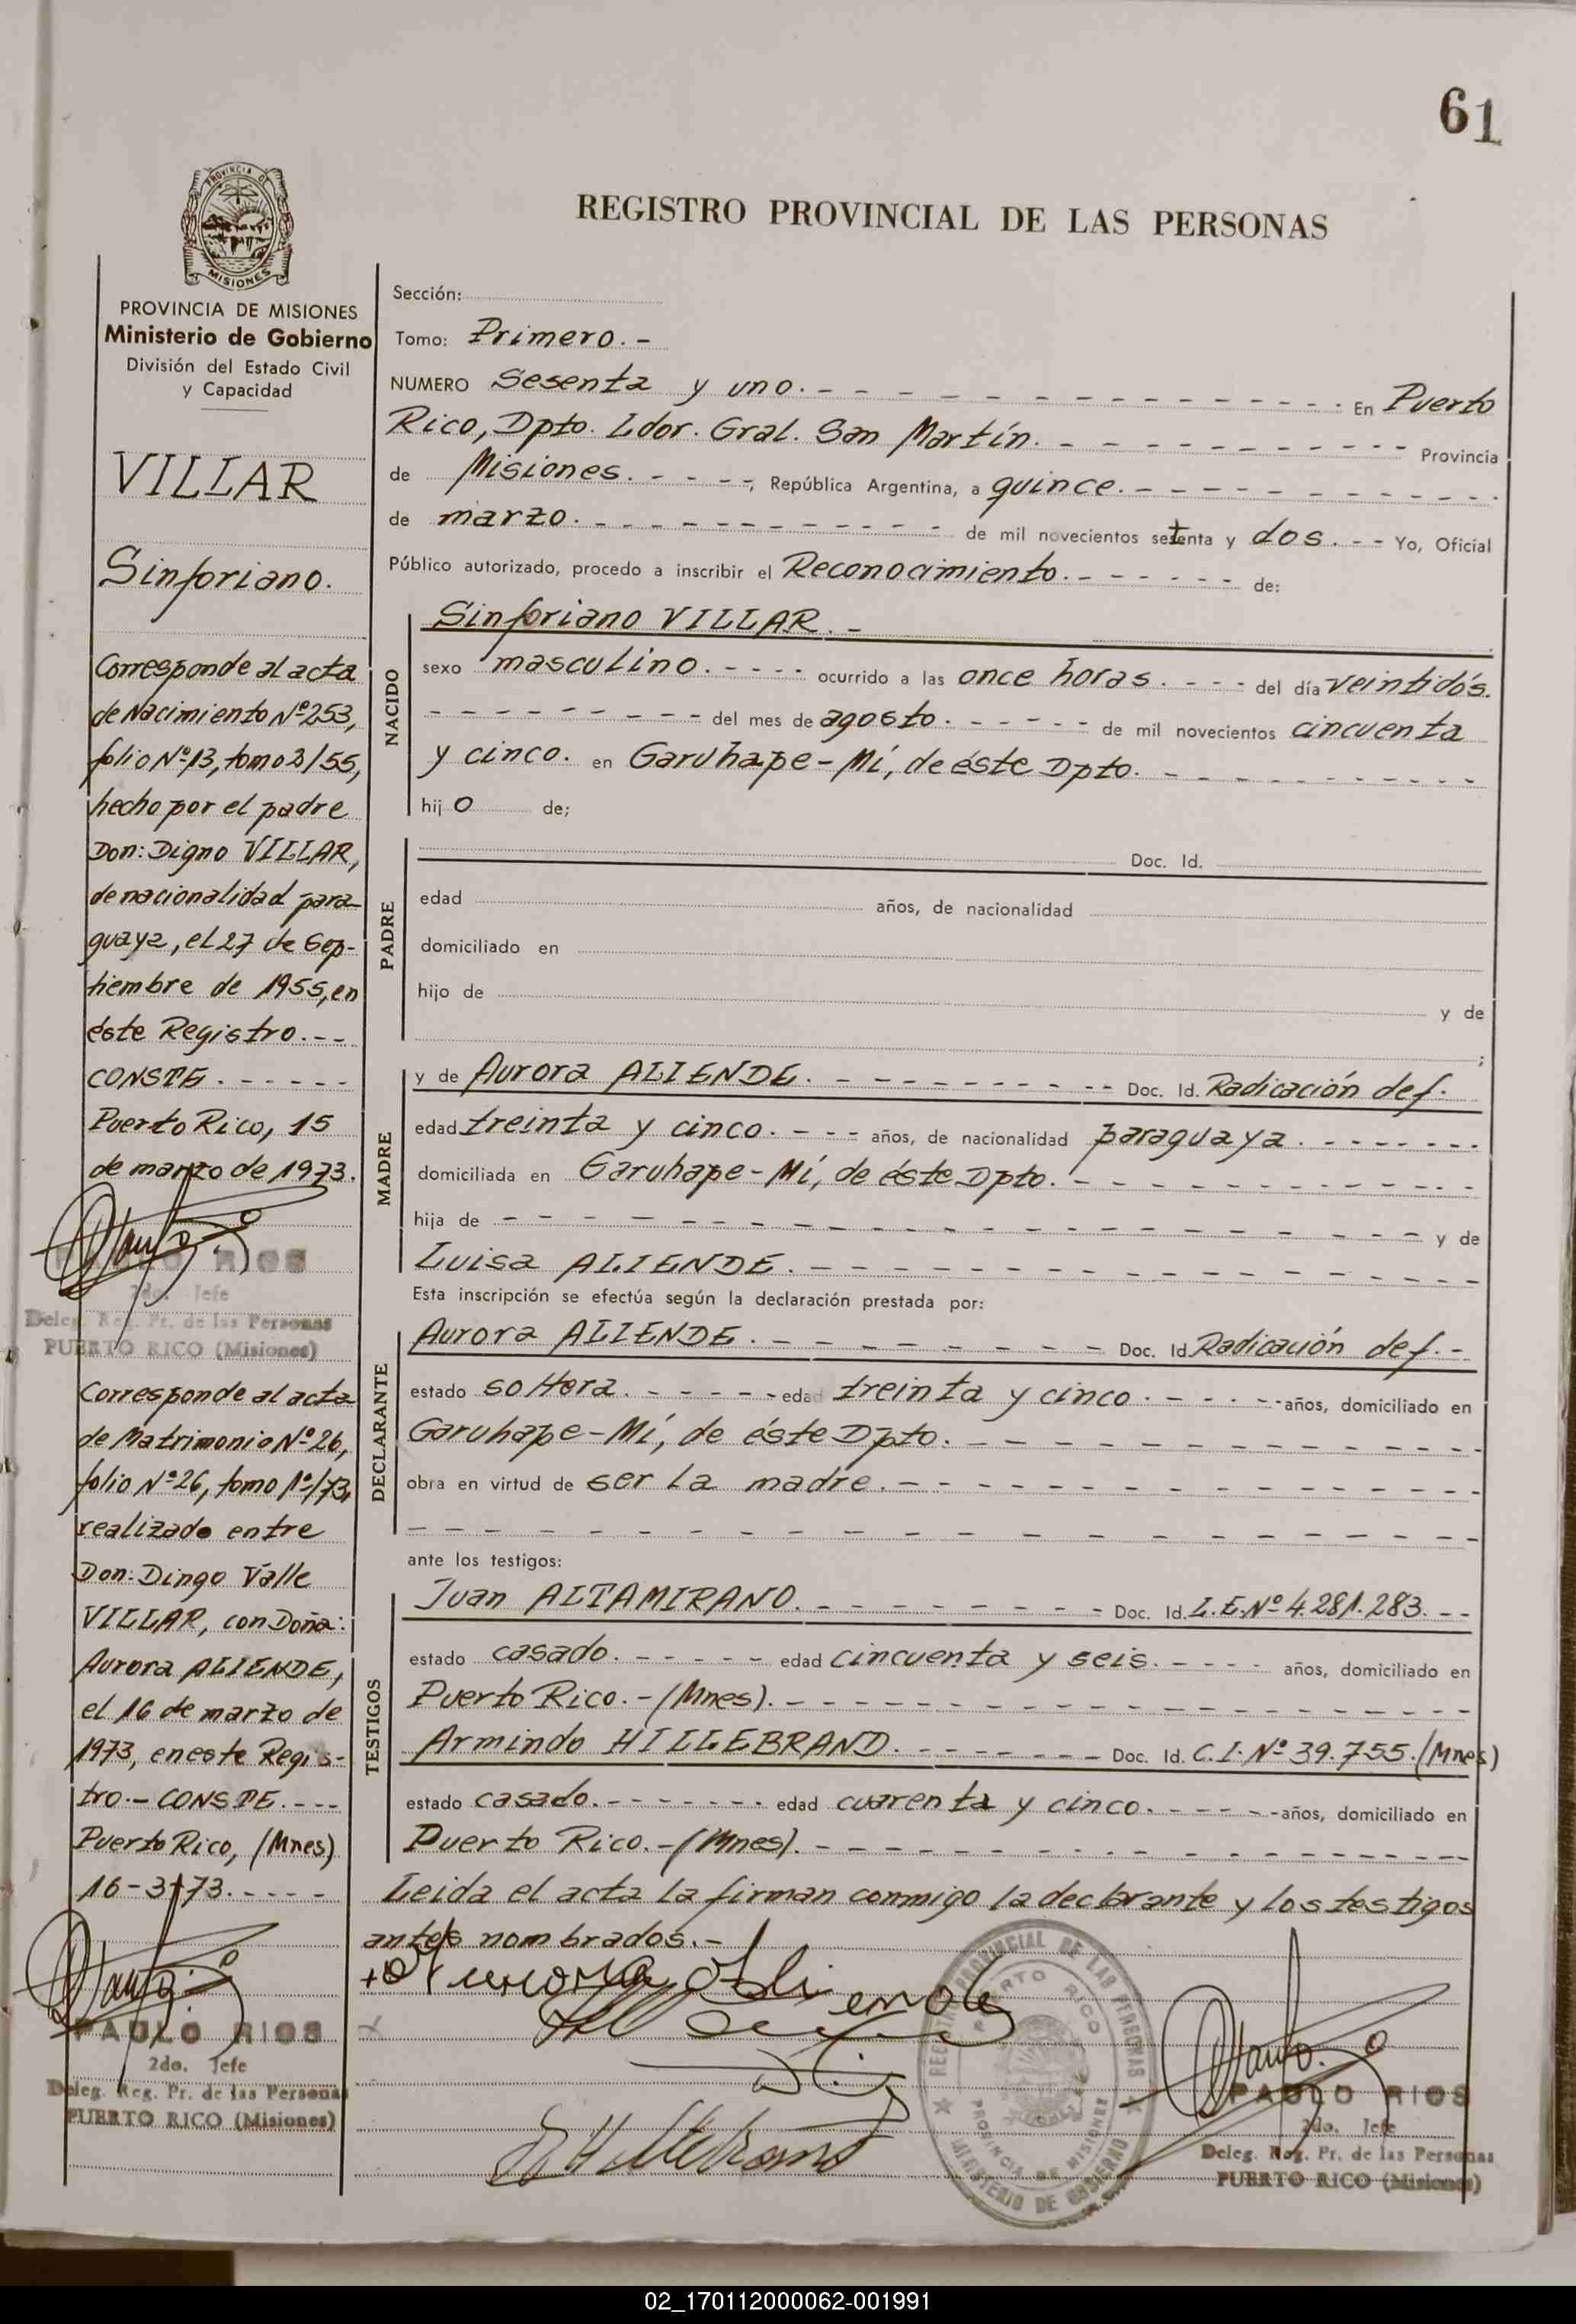 61
PROVINCIA DE
MISIONES
REGISTRO PROVINCIAL DE LAS PERSONAS
PROVINCIA DE MISIONES
Ministerio de Gobierno
División del Estado Civil
y Capacidad
VILLAR
Sinforiano.
Corresponde al acta
de Nacimiento Nº 253,
folio Nº 13, tomo 2/55,
hecho por el padre
Don: Digno VILLAR,
de nacionalidad para-
guaya, el 27 de Sep-
tiembre de 1955, en
éste Registro.--
CONSTE.-----
Puerto Rico, 15
de marzo de 1973.
PAULO RIOS
2do. Jefe
Deleg. Reg. Pr. de las Personas
PUERTO RICO (Misiones)
Corresponde al acta
de Matrimonio Nº 26,
folio Nº 26, tomo 1º/73,
realizado entre
Don: Dingo Valle
VILLAR, con Doña:
Aurora ALIENDE,
el 16 de marzo de
1973, en este Regis-
tro.- CONSTE.---
Puerto Rico, (Mnes)
16-3-73.----
PAULO RIOS
2do. Jefe
Deleg. Reg. Pr. de las Personas
PUERTO RICO (Misiones)
Sección:
Tomo: Primero.-
NUMERO Sesenta y uno.- En Puerto
Rico, Dpto. Ldor. Gral. San Martín.- Provincia
de Misiones.----, República Argentina, a quince.-
de marzo.- de mil novecientos setenta y dos.-- Yo, Oficial
Público autorizado, procedo a inscribir el Reconocimiento.- de:
NACIDO
Sinforiano VILLAR.-
sexo masculino.---- ocurrido a las once horas.--- del día veintidós.
- del mes de agosto.- de mil novecientos cincuenta
y cinco. en Garuhape-Mí, de éste Dpto.-
hijo de;
PADRE
Doc. Id.
edad años, de nacionalidad
domiciliado en
hijo de y de
;
MADRE
y de Aurora ALIENDE.- Doc. Id. Radicación def.
edad treinta y cinco.--- años, de nacionalidad paraguaya.-
domiciliada en Garuhape-Mí, de éste Dpto.-
hija de - y de
Luisa ALIENDE.-
Esta inscripción se efectúa según la declaración prestada por:
DECLARANTE
Aurora ALIENDE.- Doc. Id. Radicación def.-
estado soltera.- edad treinta y cinco.- años, domiciliado en
Garuhape-Mí, de éste Dpto.-
obra en virtud de ser la madre.-
ante los testigos:
TESTIGOS
Juan ALTAMIRANO.- Doc. Id. L.E. Nº 4.281.283.--
estado casado.- edad cincuenta y seis.- años, domiciliado en
Puerto Rico.-(Mnes).-
Armindo HILLEBRAND.- Doc. Id. C.I. Nº 39.755.(Mnes)
estado casado.- edad cuarenta y cinco.- años, domiciliado en
Puerto Rico.-(Mnes).-
Leida el acta la firman conmigo la declarante y los testigos
antes nombrados.-
Aurora Aliende
REGISTRO PROVINCIAL DE LAS PERSONAS
PUERTO RICO
PROVINCIA DE MISIONES
MINISTERIO DE GOBIERNO
PAULO RIOS
2do. Jefe
Deleg. Reg. Pr. de las Personas
PUERTO RICO (Misiones)
02_170112000062-001991